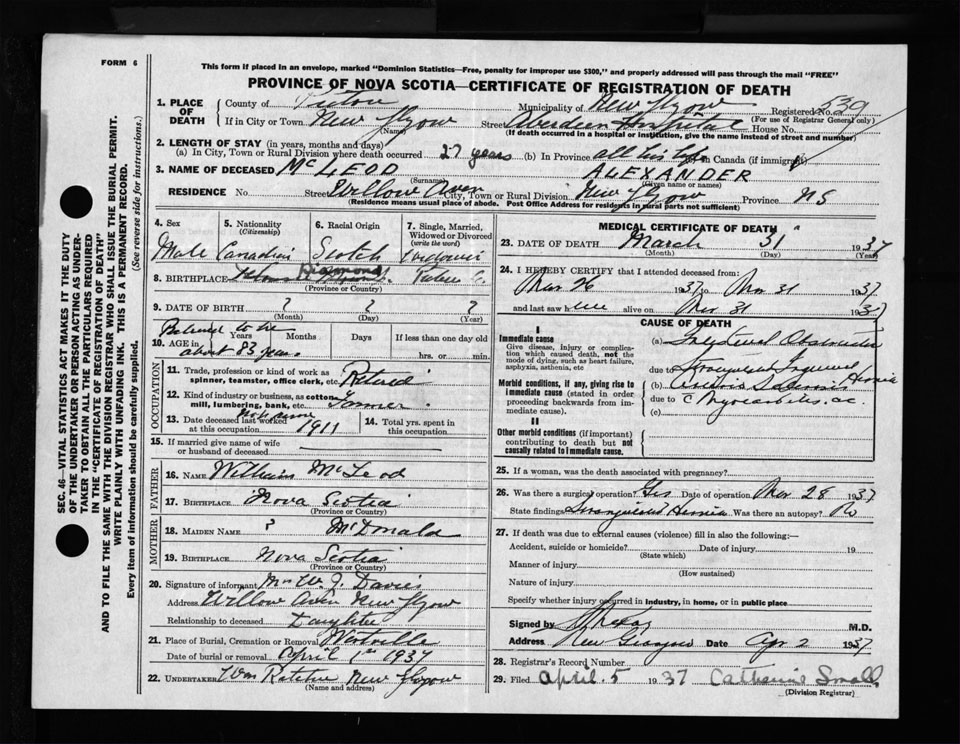 FORM 6
This form if placed in an envelope, marked "Dominion Statistics—Free, penalty for improper use $300," and properly addressed will pass through the mail "FREE"
PROVINCE OF NOVA SCOTIA—CERTIFICATE OF REGISTRATION OF DEATH
1. PLACE OF DEATH
County of Pictou Municipality of New Glasgow Registered No. 539
(For use of Registrar General only)
If in City or Town New Glasgow Street Aberdeen Hospital House No.
(Name) (If death occurred in a hospital or institution, give the name instead of street and number)
2. LENGTH OF STAY (in years, months and days)
(a) In City, Town or Rural Division where death occurred 27 years (b) In Province all his life In Canada (if immigrant)
3. NAME OF DECEASED McLEOD ALEXANDER
(Surname) (Given name or names)
RESIDENCE No. Street Willow Aven City, Town or Rural Division New Glasgow Province NS
(Residence means usual place of abode. Post Office Address for residents in rural parts not sufficient)
4. Sex
Male
5. Nationality
(Citizenship)
Canadian
6. Racial Origin
Scotch
7. Single, Married, Widowed or Divorced
(write the word)
Widower
8. BIRTHPLACE Diamond Pictou C.
(Province or Country)
9. DATE OF BIRTH ? ? ?
(Month) (Day) (Year)
Believed to be
10. AGE in about 83 years
Years Months Days If less than one day old
hrs. or min.
OCCUPATION
11. Trade, profession or kind of work as spinner, teamster, office clerk, etc. Retired
12. Kind of industry or business, as cotton mill, lumbering, bank, etc. Farmer
13. Date deceased last worked at this occupation 1911
14. Total yrs. spent in this occupation
15. If married give name of wife or husband of deceased
FATHER
16. NAME William McLeod
17. BIRTHPLACE Nova Scotia
(Province or Country)
MOTHER
18. MAIDEN NAME ? McDonald
19. BIRTHPLACE Nova Scotia
(Province or Country)
20. Signature of informant Mrs W. J. Davies
Address Willow Aven New Glasgow
Relationship to deceased Daughter
21. Place of Burial, Cremation or Removal
Date of burial or removal April 1st 1937
22. UNDERTAKER Wm Ritchie New Glasgow
(Name and address)
MEDICAL CERTIFICATE OF DEATH
23. DATE OF DEATH March 31 1937
(Month) (Day) (Year)
24. I HEREBY CERTIFY that I attended deceased from:
Mar 26 1937 to Mar 31 1937
and last saw him alive on Mar 31 1937
CAUSE OF DEATH
I
Immediate cause
Give disease, injury or complication which caused death, not the mode of dying, such as heart failure, asphyxia, asthenia, etc
(a) Intestinal Obstruction
due to Strangulated Inguinal Hernia
Morbid conditions, if any, giving rise to immediate cause (stated in order proceeding backwards from immediate cause).
(b) Arterio Sclerosis
due to c Myocarditis. ac.
(c)
II
Other morbid conditions (if important) contributing to death but not causally related to immediate cause.
25. If a woman, was the death associated with pregnancy?
26. Was there a surgical operation? Yes Date of operation Mar 28 1937
State findings Strangulated Hernia Was there an autopsy? No
27. If death was due to external causes (violence) fill in also the following:—
Accident, suicide or homicide? Date of injury 19
(State which)
Manner of injury
(How sustained)
Nature of injury
Specify whether injury occurred in industry, in home, or in public place
Signed by M.D.
Address New Glasgow Date Apr 2 1937
28. Registrar's Record Number
29. Filed April. 5 1937 Catherine Small
(Division Registrar)
SEC. 46—VITAL STATISTICS ACT MAKES IT THE DUTY
OF THE UNDERTAKER OR PERSON ACTING AS UNDERTAKER TO OBTAIN ALL THE PARTICULARS REQUIRED
IN THE "CERTIFICATE OF REGISTRATION OF DEATH"
AND TO FILE THE SAME WITH THE DIVISION REGISTRAR WHO SHALL ISSUE THE BURIAL PERMIT.
WRITE PLAINLY WITH UNFADING INK. THIS IS A PERMANENT RECORD.
Every item of information should be carefully supplied. (See reverse side for instructions.)